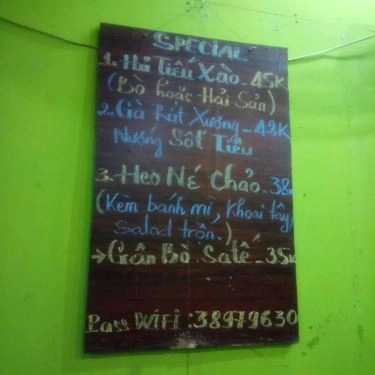 SPECIAL
1. Hủ Tiếu Xào - 45K
(Bò hoặc Hải Sản)
2. Gà Rút Xương - 42K
Nướng Sốt Tiêu
3. Heo Né Chảo - 38K
(Kem bánh mì, Khoai tây,
Salad trộn.)
→ Gân Bò Saté - 35K
Pass WiFi : 38979630